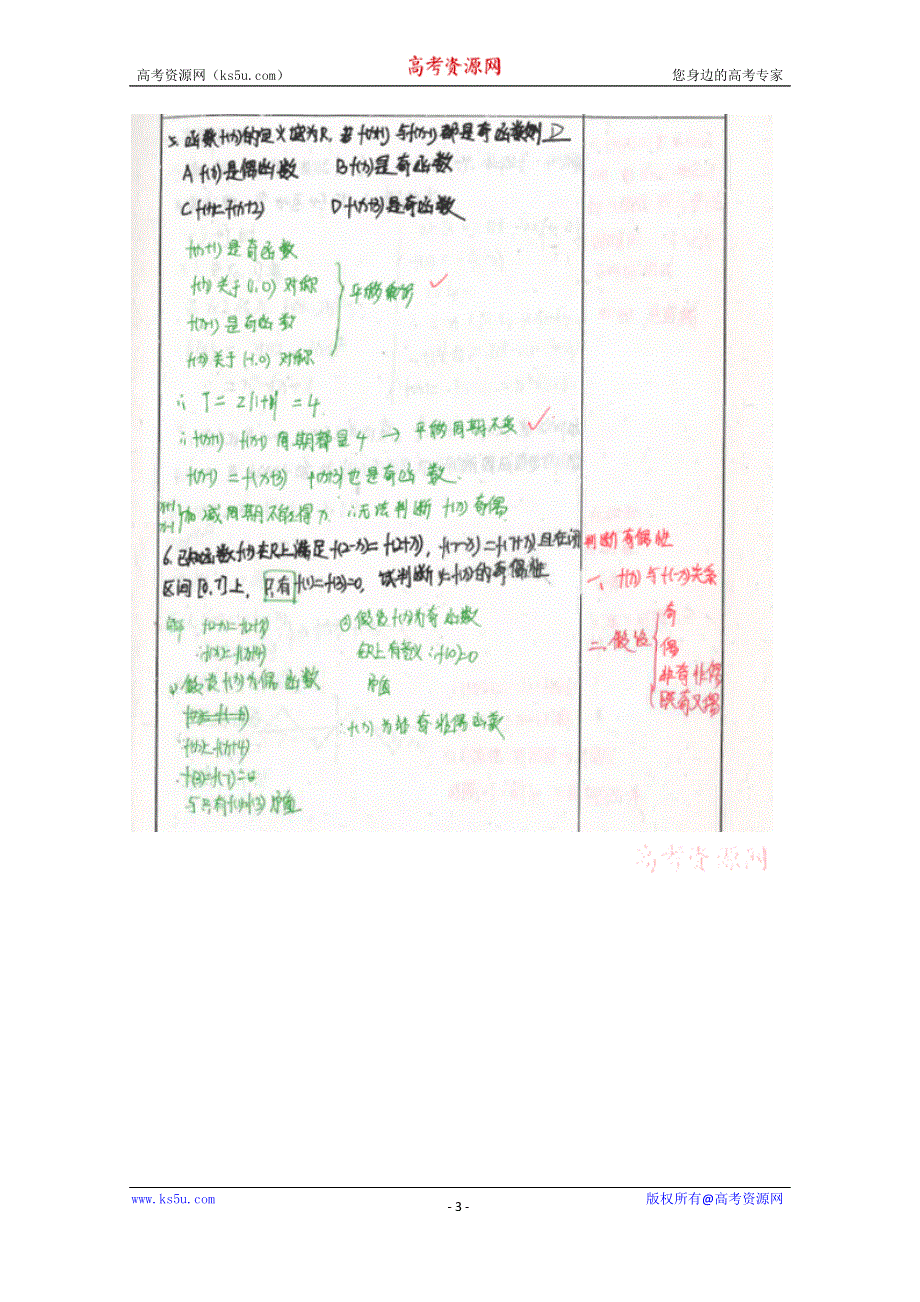 高考资源网（ks5u.com） 高考资源网 您身边的高考专家
5. 函数f(x)的定义域为R, 若f(x+1)与f(x-1)都是奇函数则 D
A f(x)是偶函数 B f(x)是奇函数
C f(x)=f(x+2) D f(x+3)是奇函数
f(x+1)是奇函数
f(x)关于(1,0)对称
平移
f(x-1)是奇函数
f(x)关于(-1,0)对称
∴ T = 2|1+1| = 4
∴f(x+1) f(x-1) 周期都是4 → 平移周期不变
f(x-1) = f(x+3) f(x+3)也是奇函数.
x+1
x-1 加减周期不能得x ∴无法判断f(x)奇偶
6. 已知函数f(x)在R上满足f(2-x)=f(2+x), f(7-x)=f(7+x)且在闭
区间[0,7]上, 只有f(1)=f(3)=0, 试判断y=f(x)的奇偶性
f(2-x)=f(2+x)
∴f(-x)=f(x+4)
(1) 假设f(x)为偶函数
f(x)=f(-x)
f(x)=f(x+4)
∴f(3)=f(7)=0
与只有f(1)=f(3)矛盾
② 假设f(x)为奇函数
在R上有意义∴f(0)=0
矛盾
∴f(x)为非奇非偶函数
判断奇偶性
一、f(x)与f(-x)关系
二、假设
奇
偶
非奇非偶
既奇又偶
高考资源网
www.ks5u.com - 3 - 版权所有@高考资源网